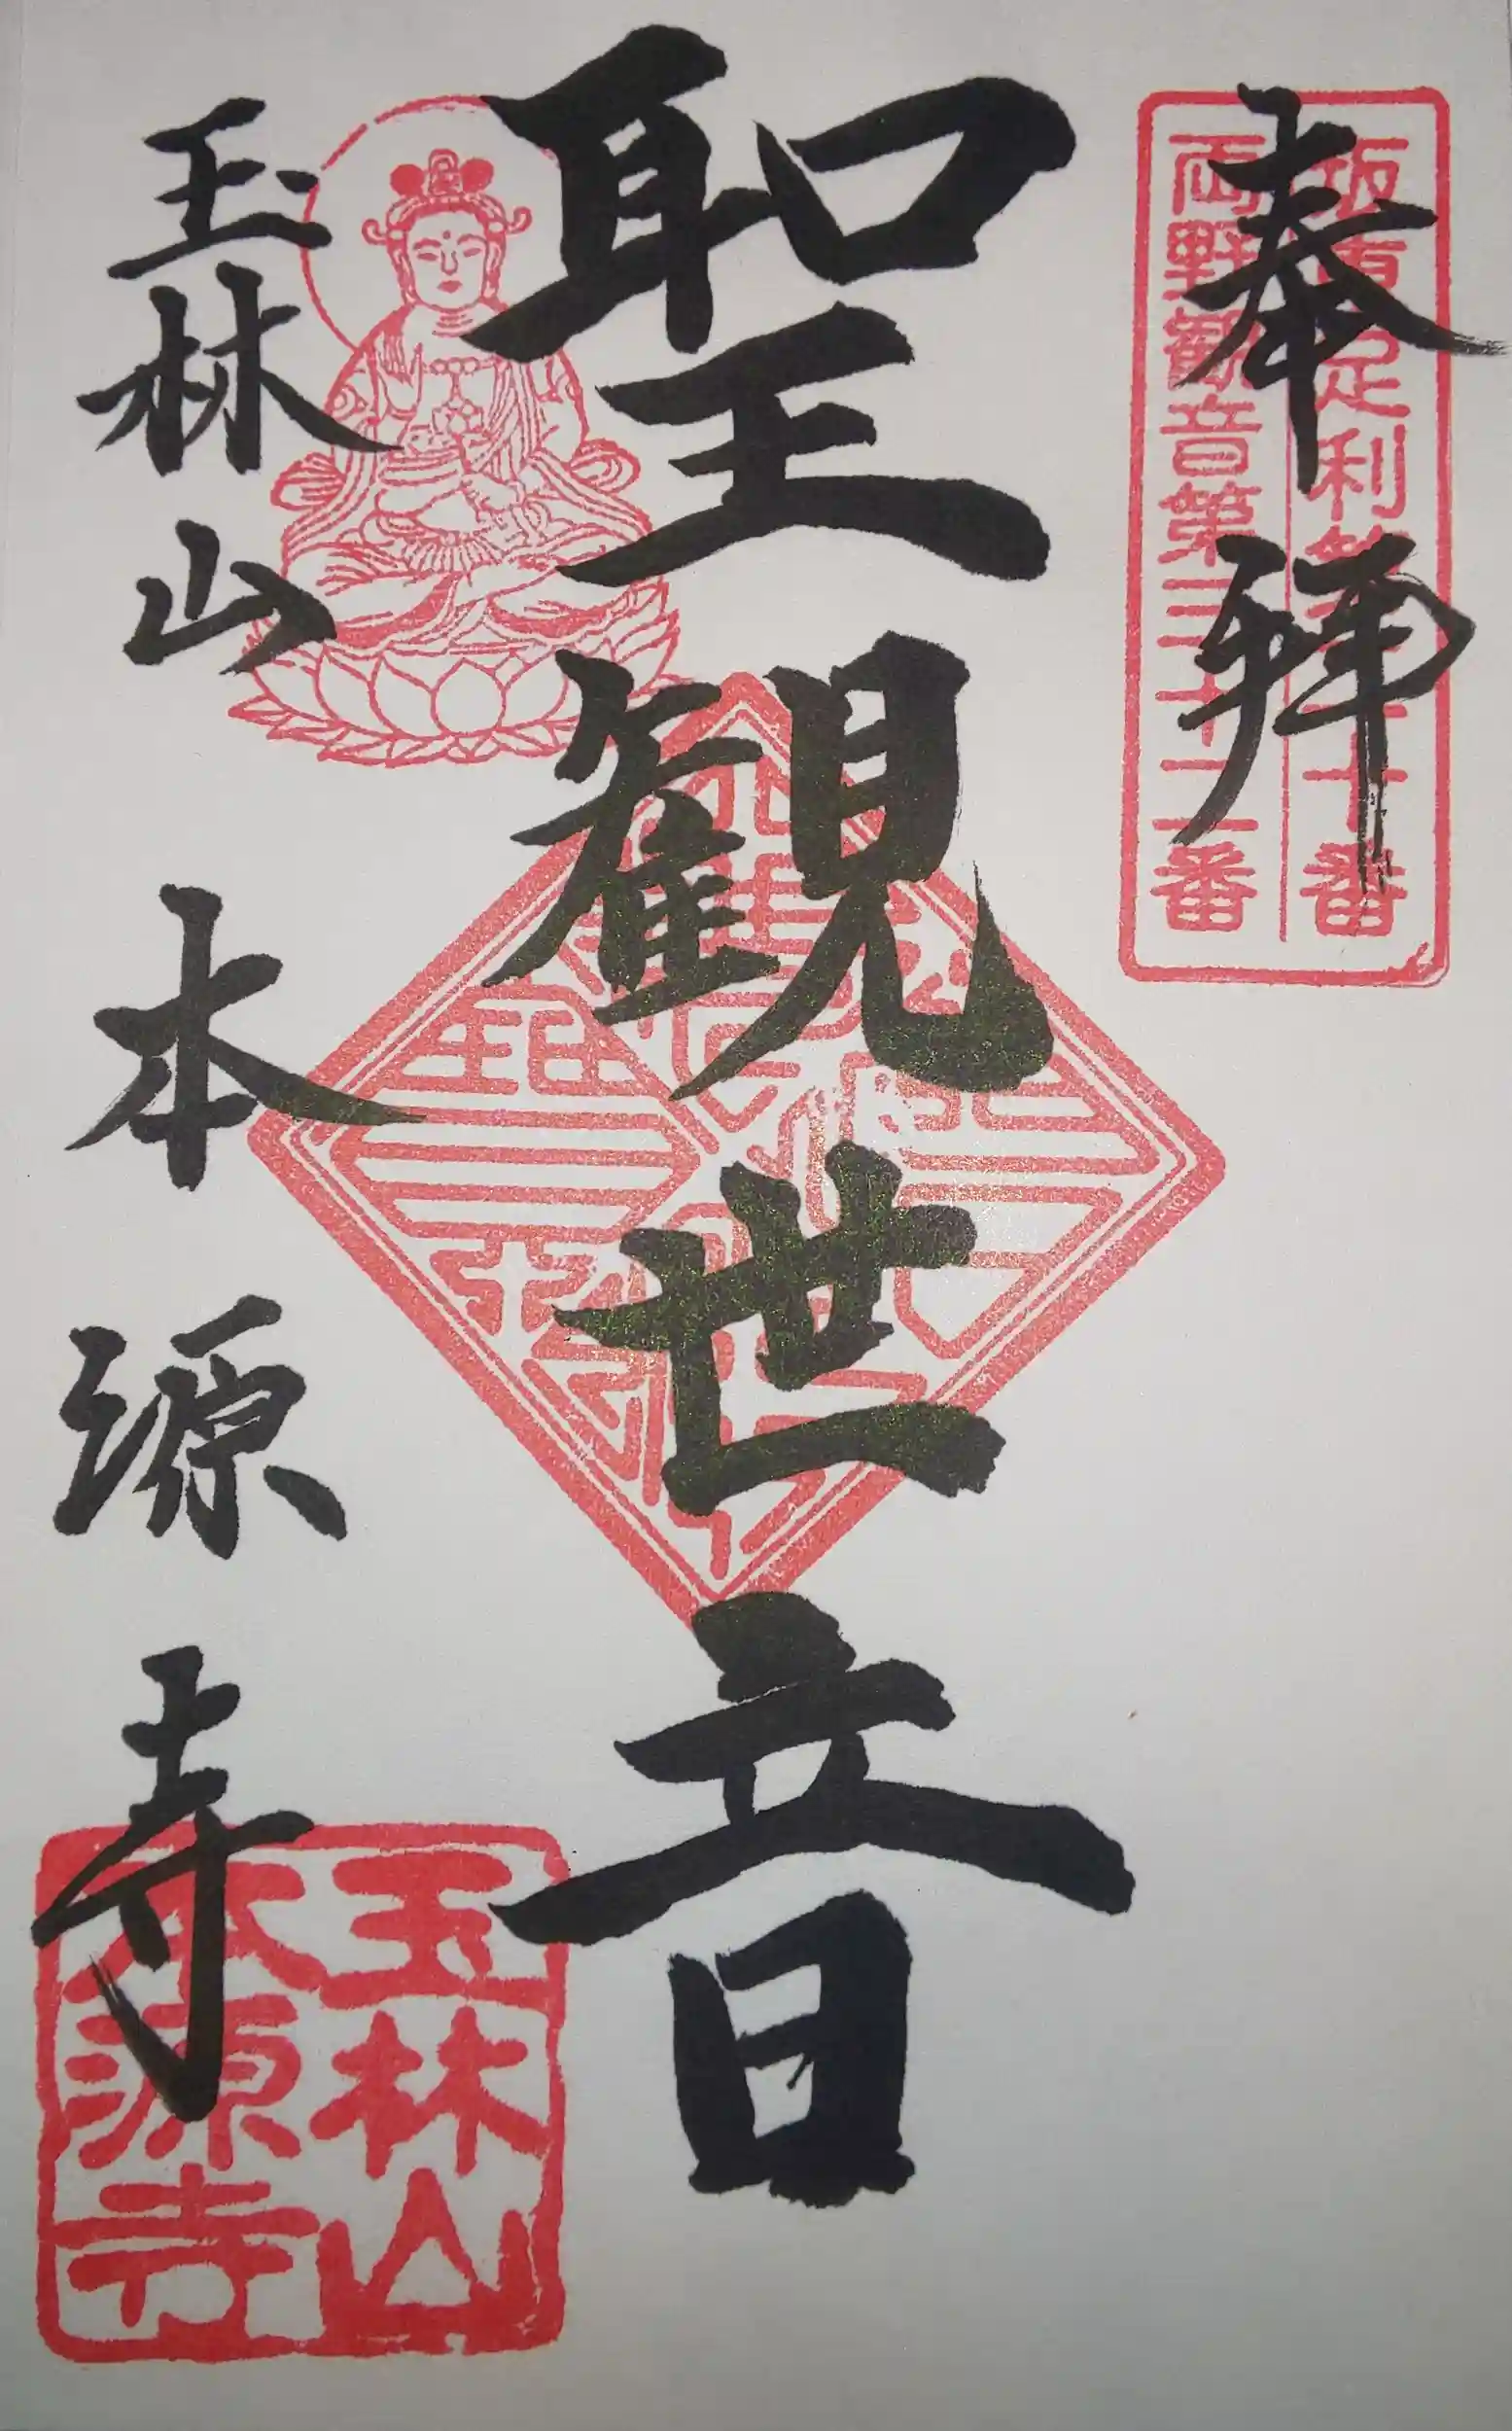 奉拝
坂東足利第二十番
両野観音第三十二番
聖観世音
玉林山本源寺
玉林山
本源寺